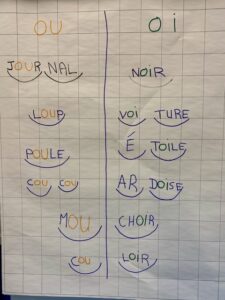 OU OI
JOUR NAL NOIR
LOUP VOI TURE
POULE É TOILE
COU COU AR DOISE
MOU CHOIR
COU LOIR